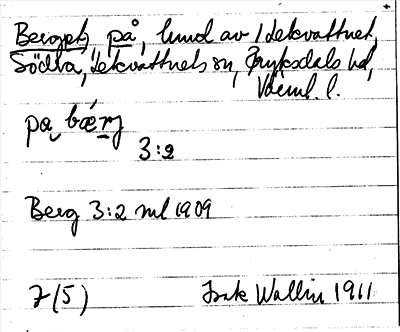 Berget, på, hmd av Lekvattnet,
Södra, Lekvattnets sn, Fryksdals hd,
Värml. l.
pa bærj
3:2
Berg 3:2 ml 1909
7(5) Isak Wallin 1911